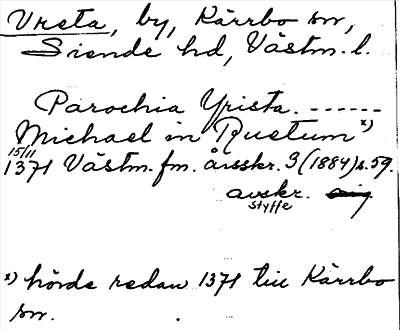 Vreta, by, Kärrbo sn,
Siende hd, Västm. l.
Parochia Yrista. ------
Michael in Rustum x)
15/11
1371 Västm. fm. årsskr. 3 (1884) s. 59.
avskr.
Styffe
x) hörde redan 1371 till Kärrbo
sn.